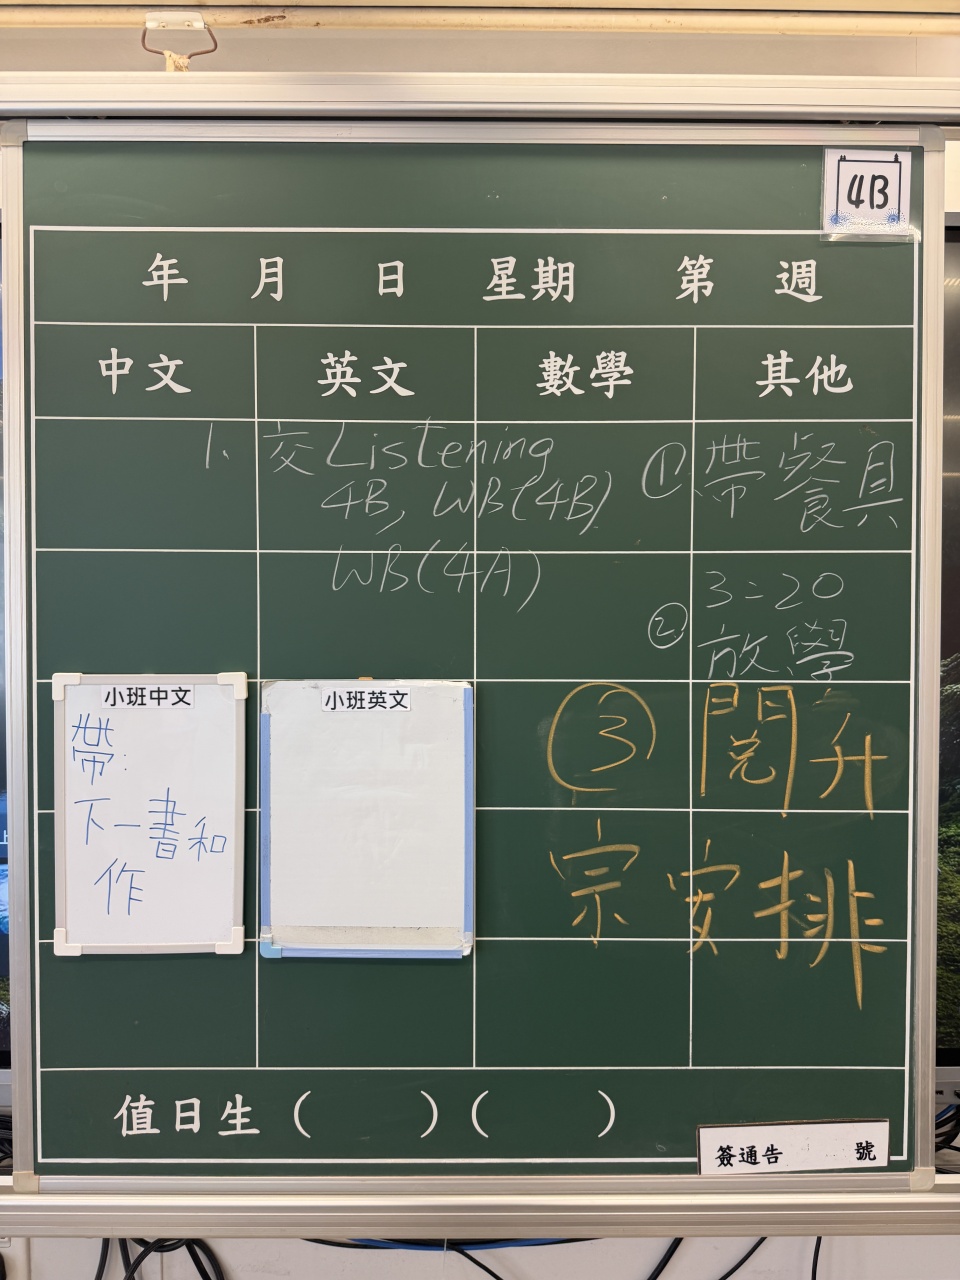 4B
年 月 日 星期 第 週
中文 英文 數學 其他
1. 交Listening
4B, WB(4B)
WB(4A)
① 帶餐具
② 3:20
放學
③ 閱升
宗安排
小班中文
帶:
下一書和
作
小班英文
值日生 ( ) ( )
簽通告 號